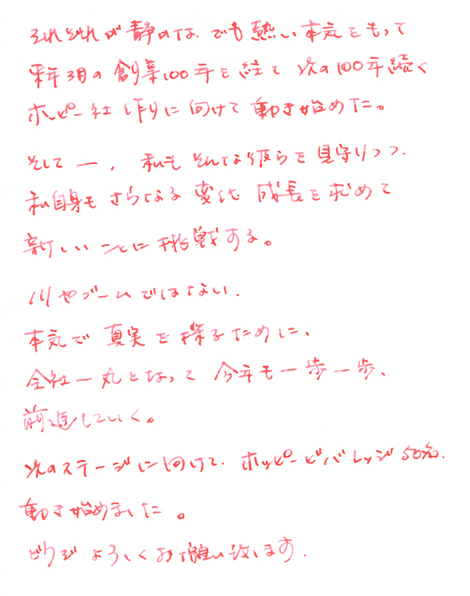 それぞれが静かな、でも熱い本気をもって
来年3月の創業100年を経て次の100年続く
ホッピー社作りに向けて動き始めた。
そして一、私もそんな彼らを見守りつつ、
私自身もさらなる変化 成長を求めて
新しいことに挑戦する。
ハヤブームではない、
本気で真実を探るために、
全社一丸となって今年も一歩一歩、
前進していく。
次のステージに向けて、ホッピービバレッジ50名、
動き始めました。
どうぞよろしくお願い致します.